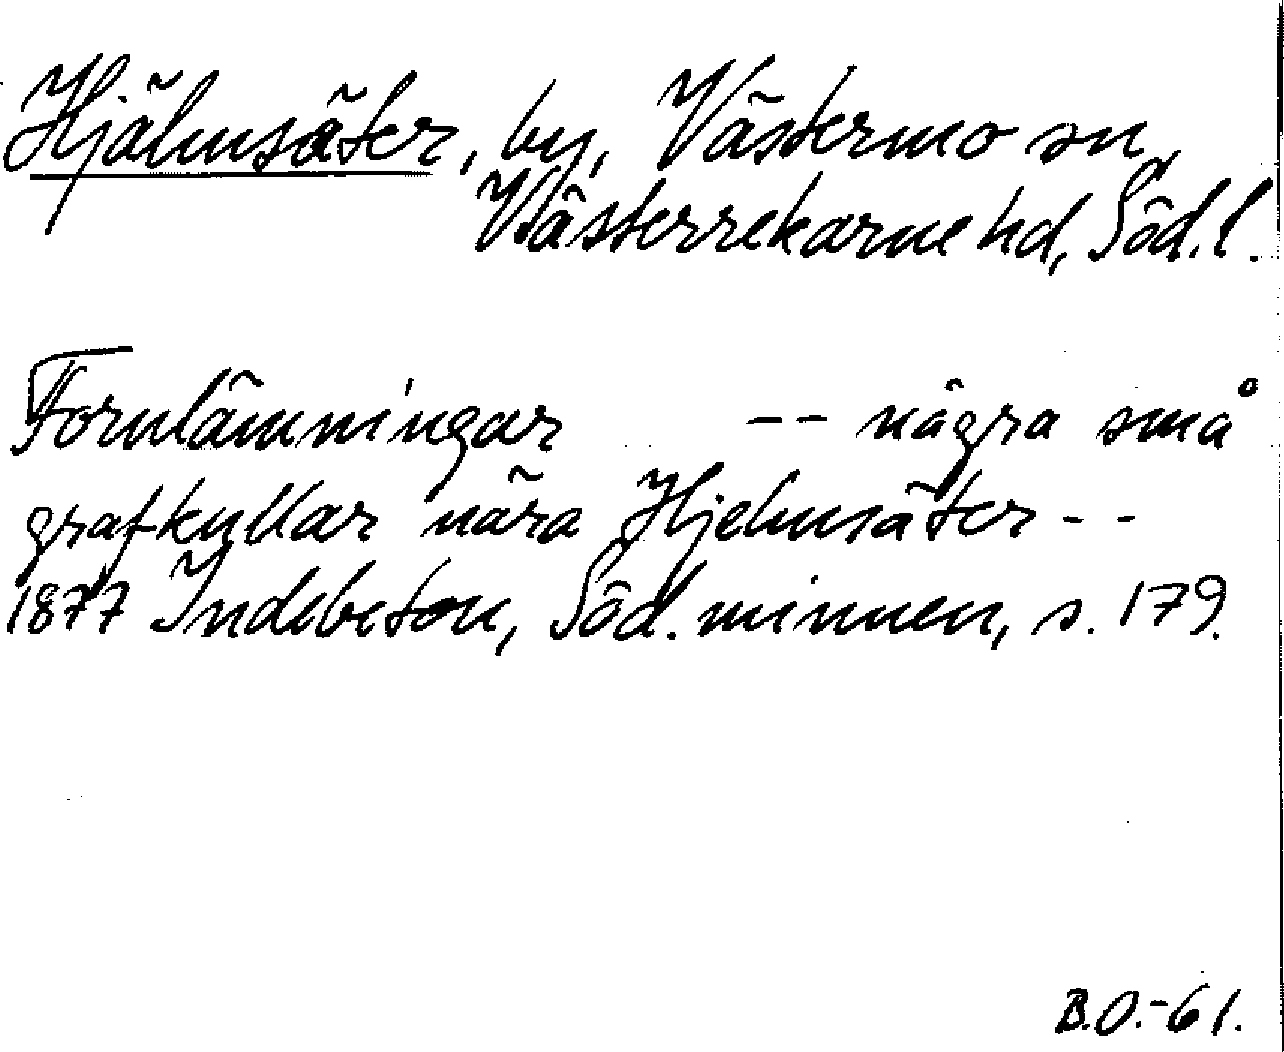 Hjälmsäter, by, Västermo sn,
Västerrekarne hd, Söd.l.
Fornlämningar -- några små
grafkullar nära Hjelmsäter --
1877 Indebetou, Söd. minnen, s. 179.
B.O.-61.